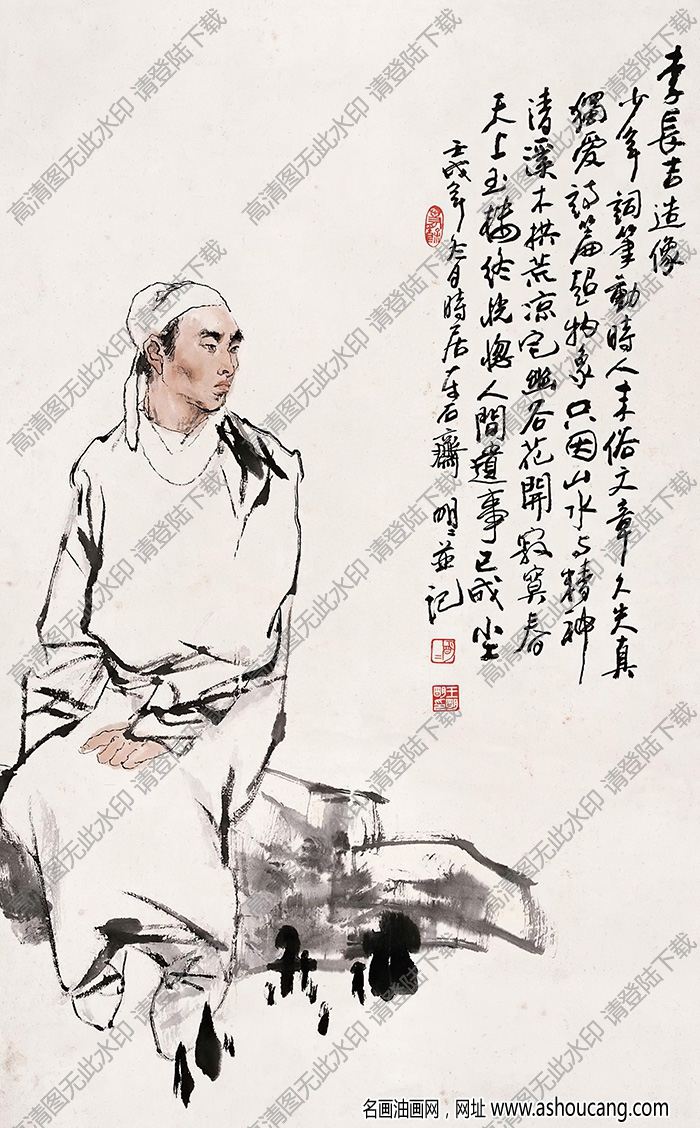 李長吉造像
少年詞筆動時人末俗文章久失真
獨愛詩篇超物象只因山水与精神
清溪木拱荒凉宅幽谷花開寂寞春
天上玉樓終恍惚人間遺事已成尘
壬戌年冬日時居石齋 明並記
王明明印
高清图无此水印 请登陆下载
名画油画网，网址 www.ashoucang.com